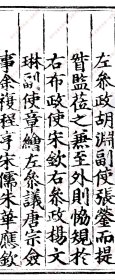 左參政胡淵副使張瑩而提
督監蒞之兼至外則恊規於
右布政使宋欽右參政楊文
琳副使章繪左參議唐宗僉
事余復程宇宋儒朱華應欽